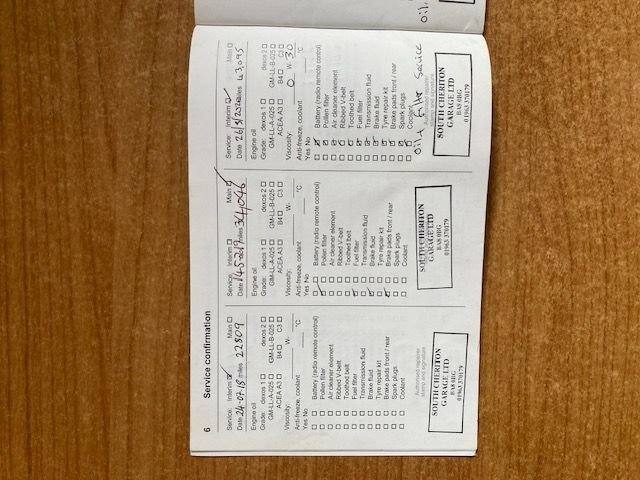 6 Service confirmation
Service: Interim ☑ Main ☐
Date 24-07-18 miles 22809
Engine oil
Grade: dexos 1 ☐ dexos 2 ☐
GM-LL-A-025 ☐ GM-LL-B-025 ☐
ACEA A3 ☐ B4 ☐ C3 ☐
Viscosity: W-
Anti-freeze, coolant °C
Yes No
☐ ☐ Battery (radio remote control)
☐ ☐ Pollen filter
☐ ☐ Air cleaner element
☐ ☐ Ribbed V-belt
☐ ☐ Toothed belt
☐ ☐ Fuel filter
☐ ☐ Transmission fluid
☐ ☐ Brake fluid
☐ ☐ Tyre repair kit
☐ ☐ Brake pads front / rear
☐ ☐ Spark plugs
☐ ☐ Coolant
Authorised repairer
stamp and signature
SOUTH CHERITON
GARAGE LTD
BA8 0BG
01963 370179
Service: Interim ☐ Main ☑
Date miles 34046
Engine oil
Grade: dexos 1 ☐ dexos 2 ☐
GM-LL-A-025 ☐ GM-LL-B-025 ☐
ACEA A3 ☐ B4 ☐ C3 ☐
Viscosity: W-
Anti-freeze, coolant °C
Yes No
Battery (radio remote control)
Pollen filter
Air cleaner element
Ribbed V-belt
Toothed belt
Fuel filter
Transmission fluid
Brake fluid
Tyre repair kit
Brake pads front / rear
Spark plugs
Coolant
SOUTH CHERITON
GARAGE LTD
BA8 0BG
01963 370179
Service: Interim ☑ Main ☐
Date miles 43,095
Engine oil
Grade: dexos 1 ☐ dexos 2 ☐
GM-LL-A-025 ☐ GM-LL-B-025 ☐
ACEA A3 ☐ B4 ☐ C3 ☐
Viscosity: 0 W- 30
Anti-freeze, coolant °C
Yes No
Battery (radio remote control)
Pollen filter
Air cleaner element
Ribbed V-belt
Toothed belt
Fuel filter
Transmission fluid
Brake fluid
Tyre repair kit
Brake pads front / rear
Spark plugs
Coolant
oil + filter service
Authorised repairer
stamp and signature
SOUTH CHERITON
GARAGE LTD
BA8 0BG
01963 370179
oil